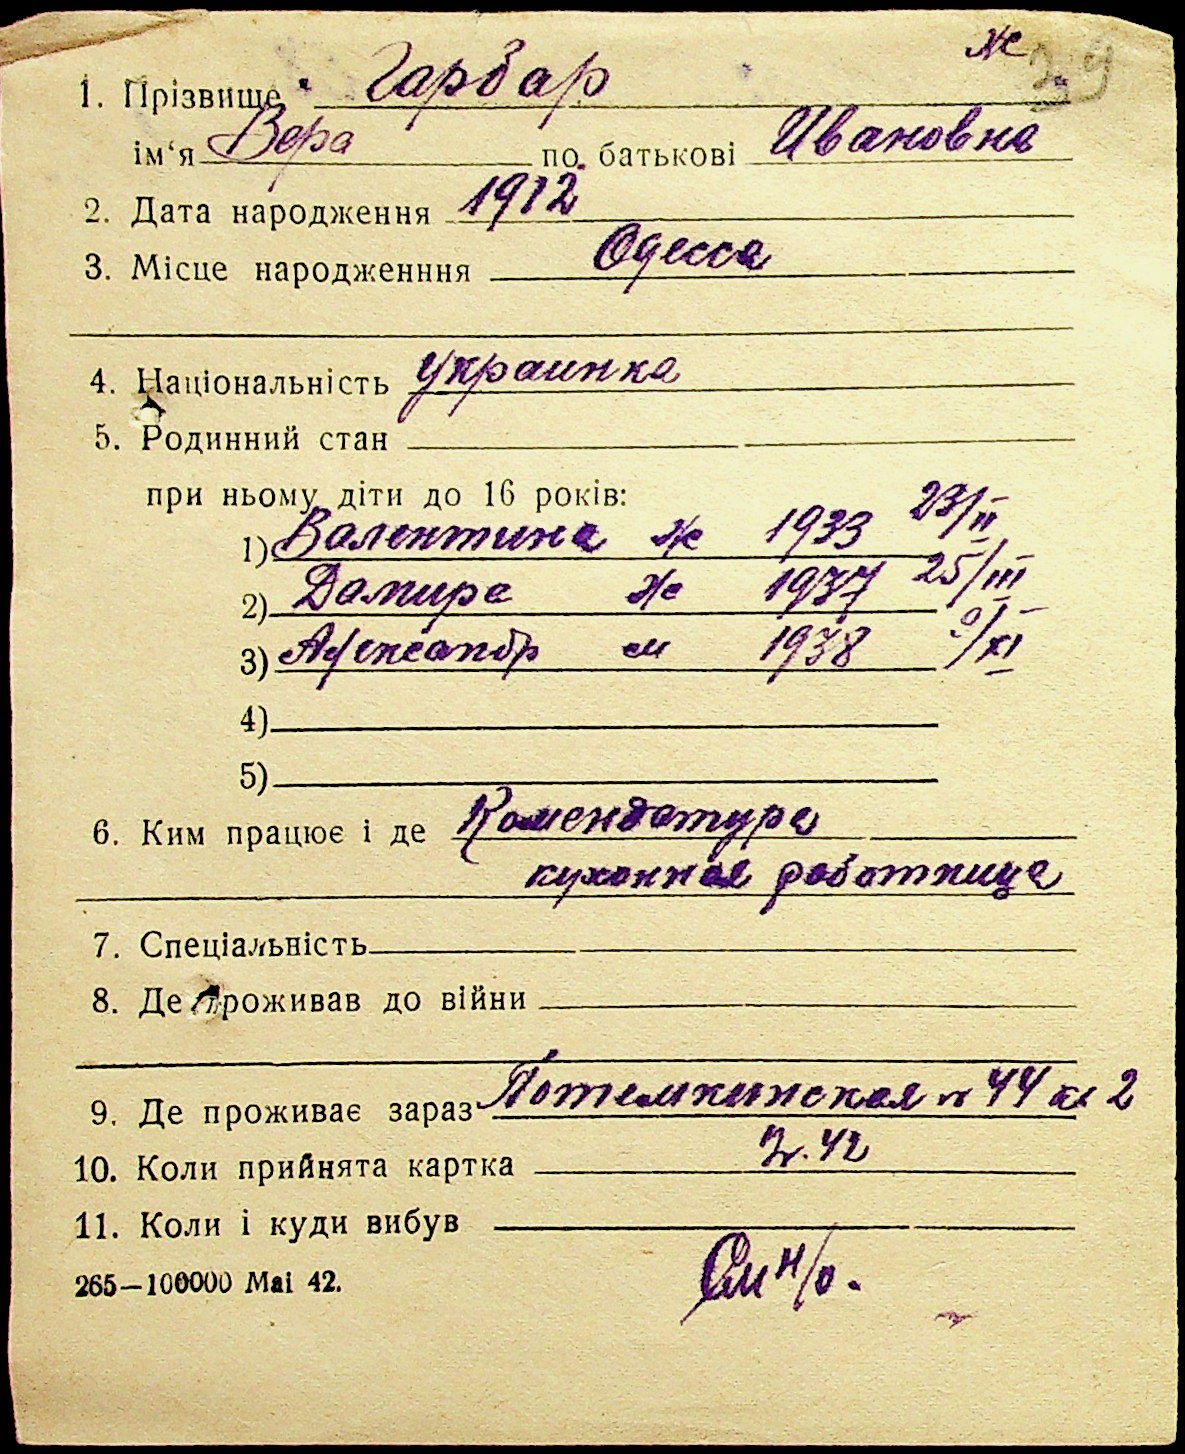 ж 39
1. Прізвище Гарбар
ім‘я Вера по батькові Ивановна
2. Дата народження 1912
3. Місце народженння Одесса
4. Національність украинка
5. Родинний стан
при ньому діти до 16 років:
1) Валентина ж 1933 23/II
2) Дамира ж 1937 25/III
3) Александр м 1938 9/XI
4)
5)
6. Ким працює і де Комендатура
кухонная работница
7. Спеціальність
8. Де проживав до війни
9. Де проживає зараз Потемкинская № 44 кв 2
10. Коли прийнята картка 42
11. Коли і куди вибув
265—100000 Mai 42.
См н/о.